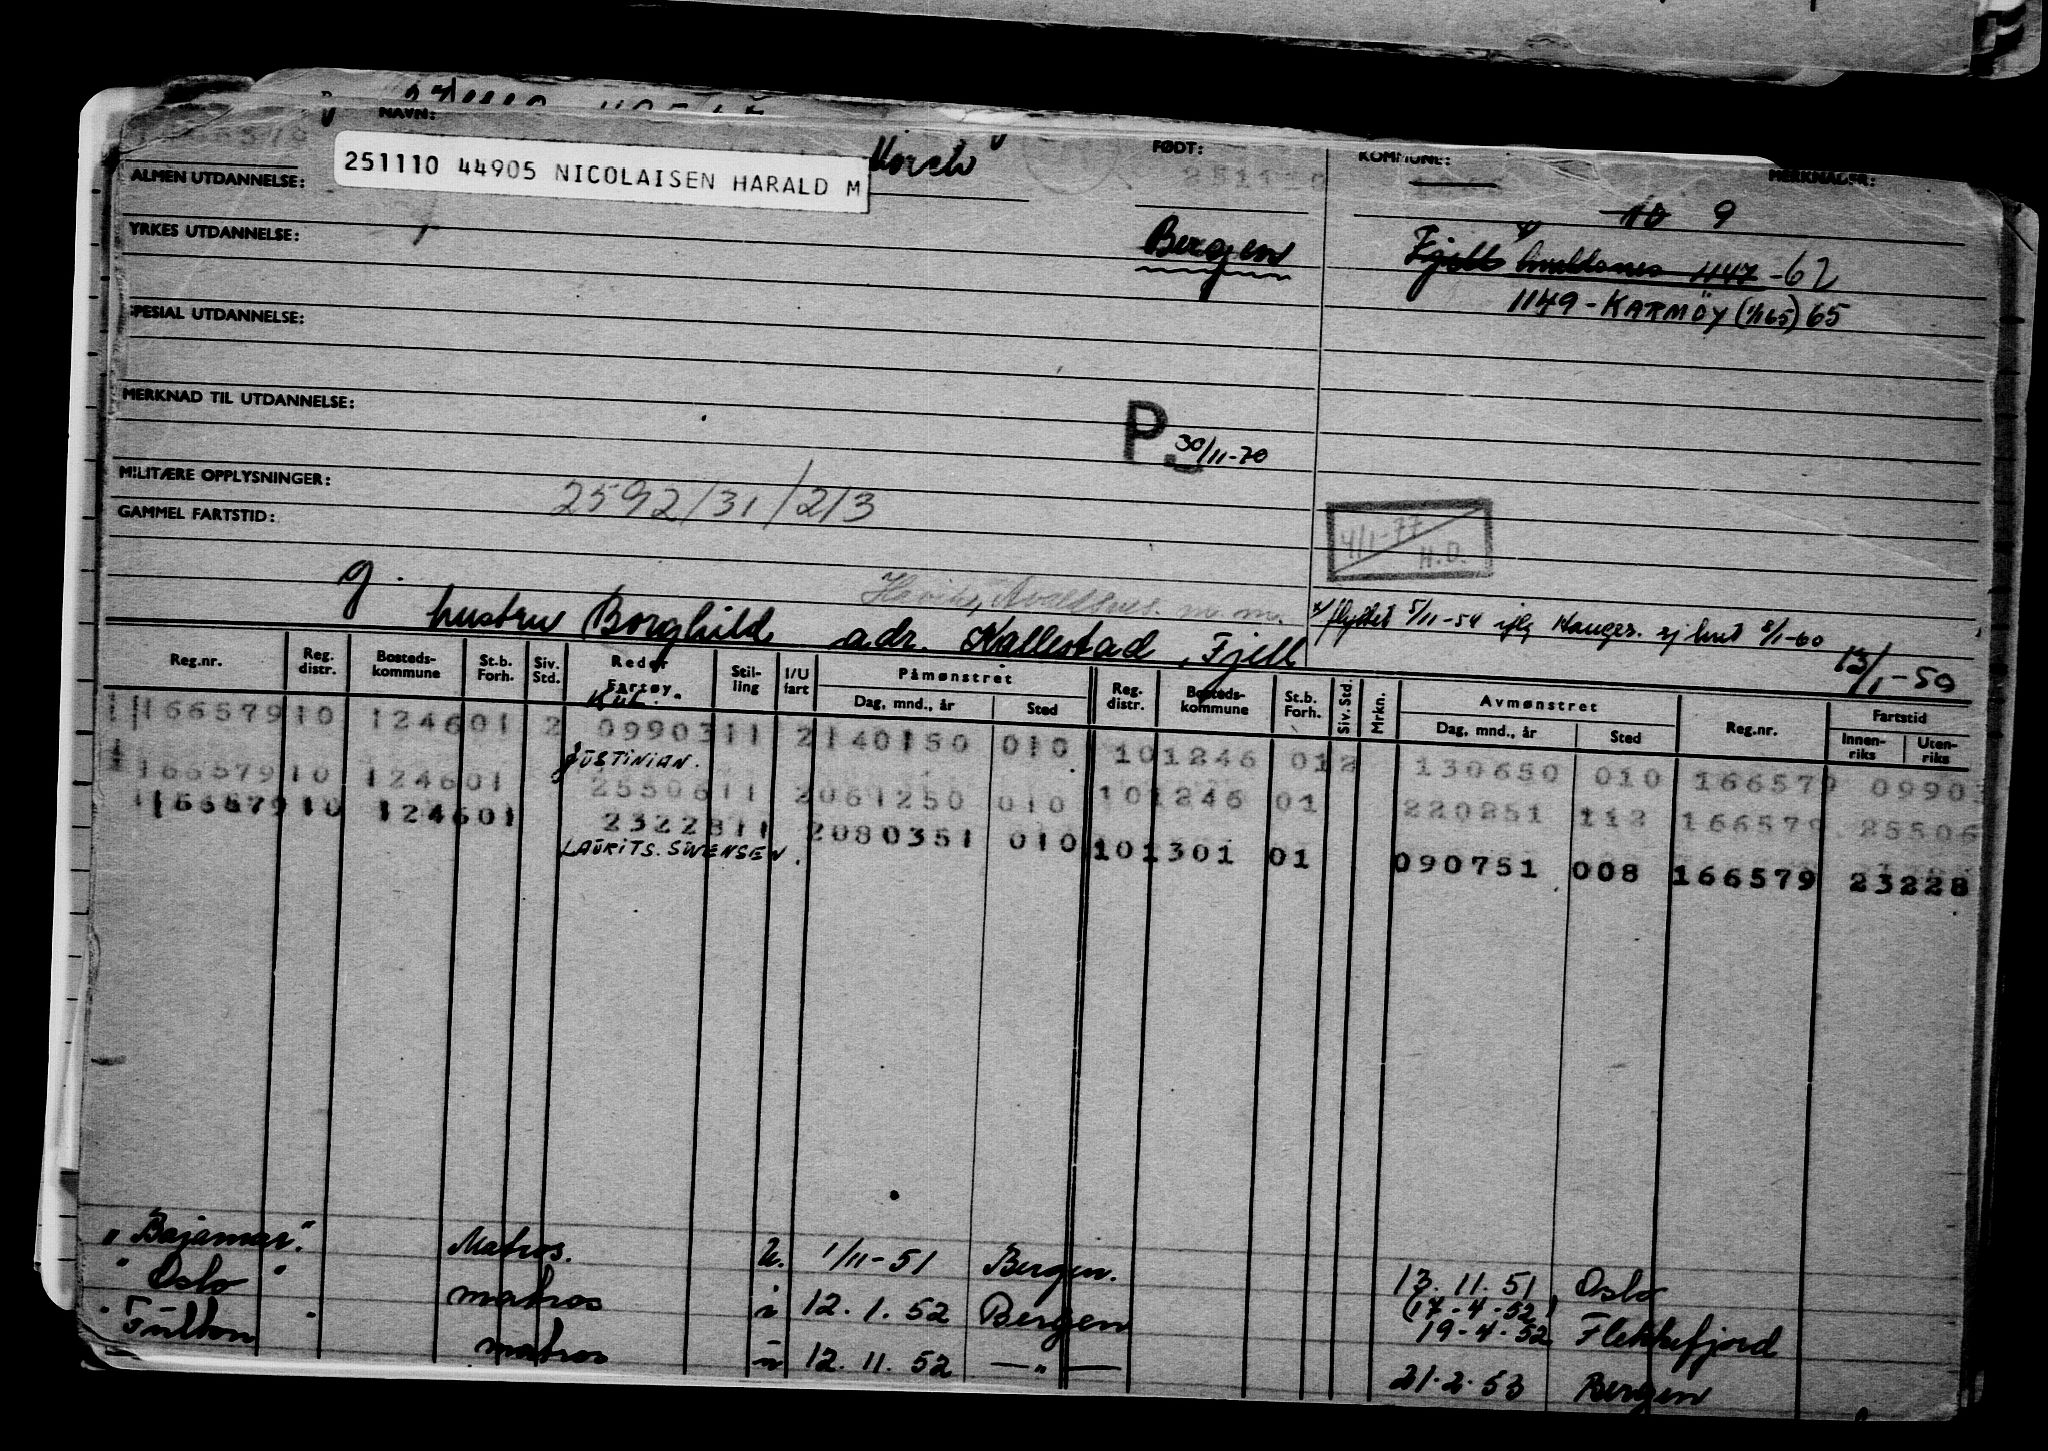 NAVN:
251110 44905 NICOLAISEN HARALD M
FØDT:
KOMMUNE:
MERKNADER:
251110
ALMEN UTDANNELSE:
10 9
YRKES UTDANNELSE:
Bergen
Fjell Avaldsnes 1147-62
1149-KARMÖY (1/1 65) 65
SPESIAL UTDANNELSE:
MERKNAD TIL UTDANNELSE:
P
30/11-70
MILITÆRE OPPLYSNINGER:
2592/31/2/3
GAMMEL FARTSTID:
4/1-77
H.O.
g.
Avaldsnes. m.m.
x/ flyttet 5/11-54 Hauges. 8/1-60
hustru Borghild adr. Kallestad, Fjell
13/1-50
Reg.nr. Reg. distr. Bosteds-kommune St.b. Forh. Siv. Std. Reder Fartøy Stil-ling I/U fart Påmønstret Dag, mnd., år Sted Reg. distr. Bosteds-kommune St.b. Forh. Siv. Std. Mrkn. Avmønstret Dag, mnd., år Sted Reg.nr. Fartstid Innen-riks Uten-riks
166579 10 1246 01 2 0990311 2 140150 010 10 1246 01 2 130650 010 166579 0990
JUSTINIAN.
166579 10 1246 01 2550611 2 061250 010 10 1246 01 220251 112 166579 25506
166579 10 1246 01 2322811 2 080351 010 10 1301 01 090751 008 166579 23228
LAURITS. SWENSEN.
"Bajamar." Matros. u. 1/11-51 Bergen. 13.11.51 Oslo
"Oslo" matros i 12.1.52 Bergen (17-4-52) 19-4-52 Flekkefjord
"Fulton" matros u 12.11.52 —"— 21.2.53 Bergen